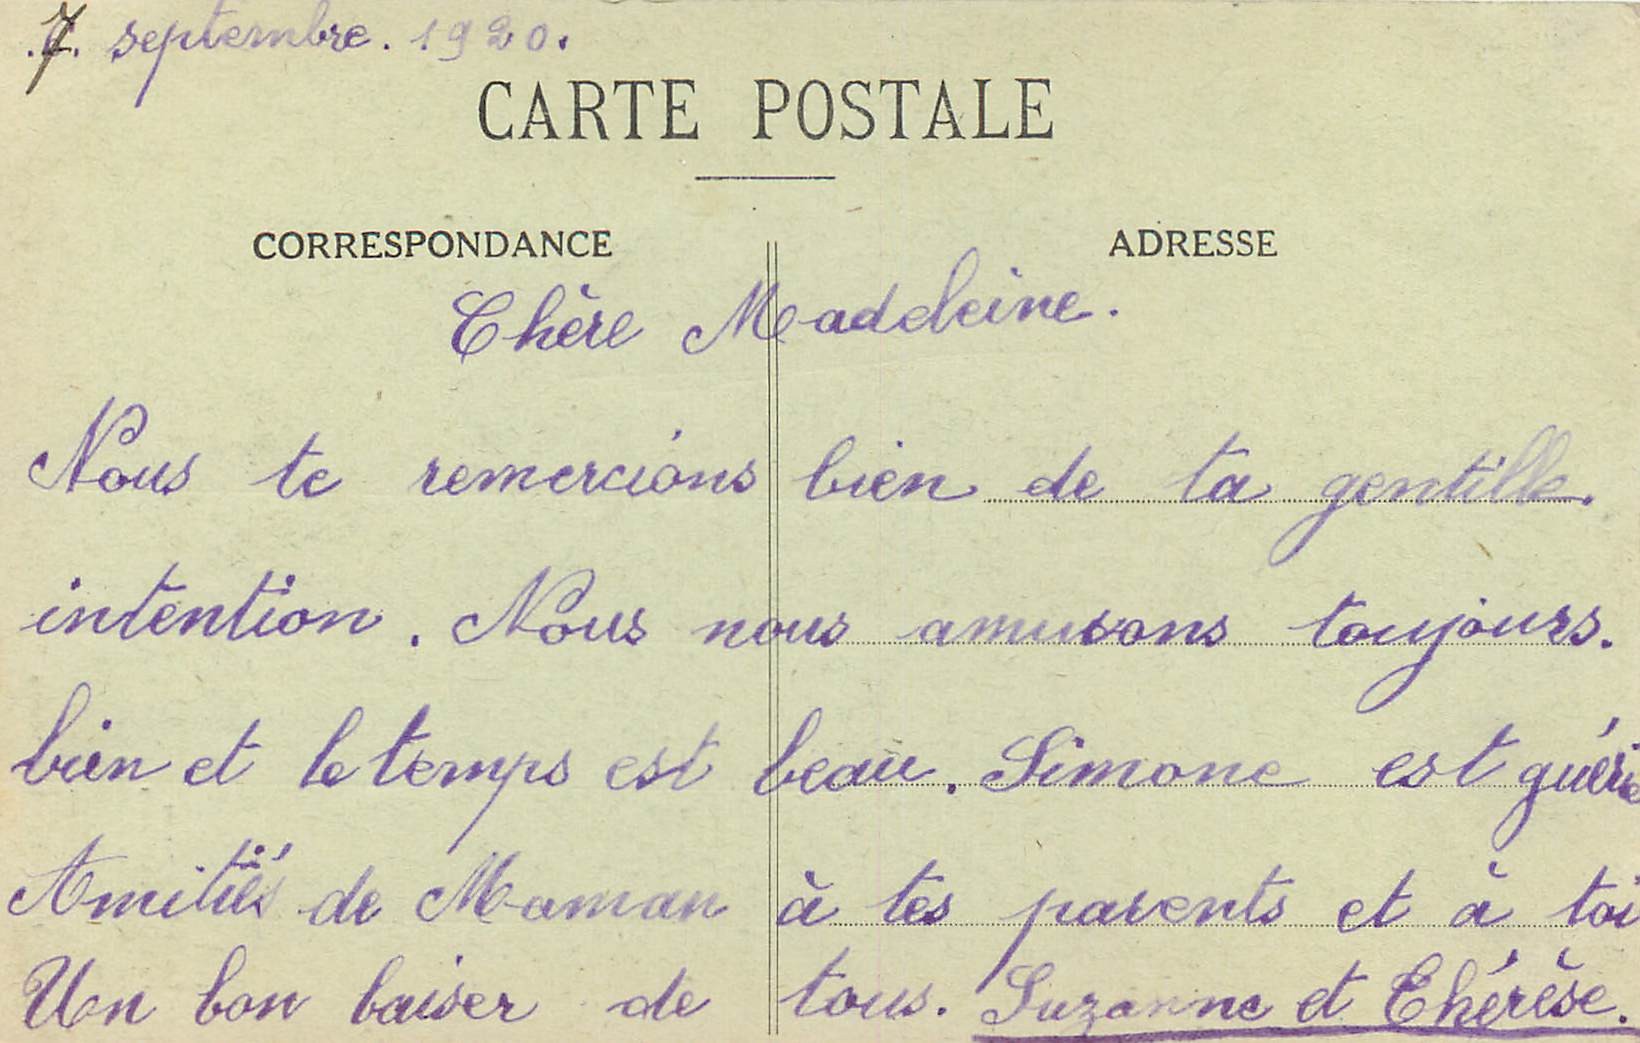 .7. septembre. 1920.
CARTE POSTALE
CORRESPONDANCE
ADRESSE
Chère Madeleine.
Nous te remercions bien de ta gentille.
intention. Nous nous amusons toujours.
bien et le temps est beau. Simone est guérie
Amitiés de Maman à tes parents et à toi
Un bon baiser de tous. Suzanne et Thérèse.